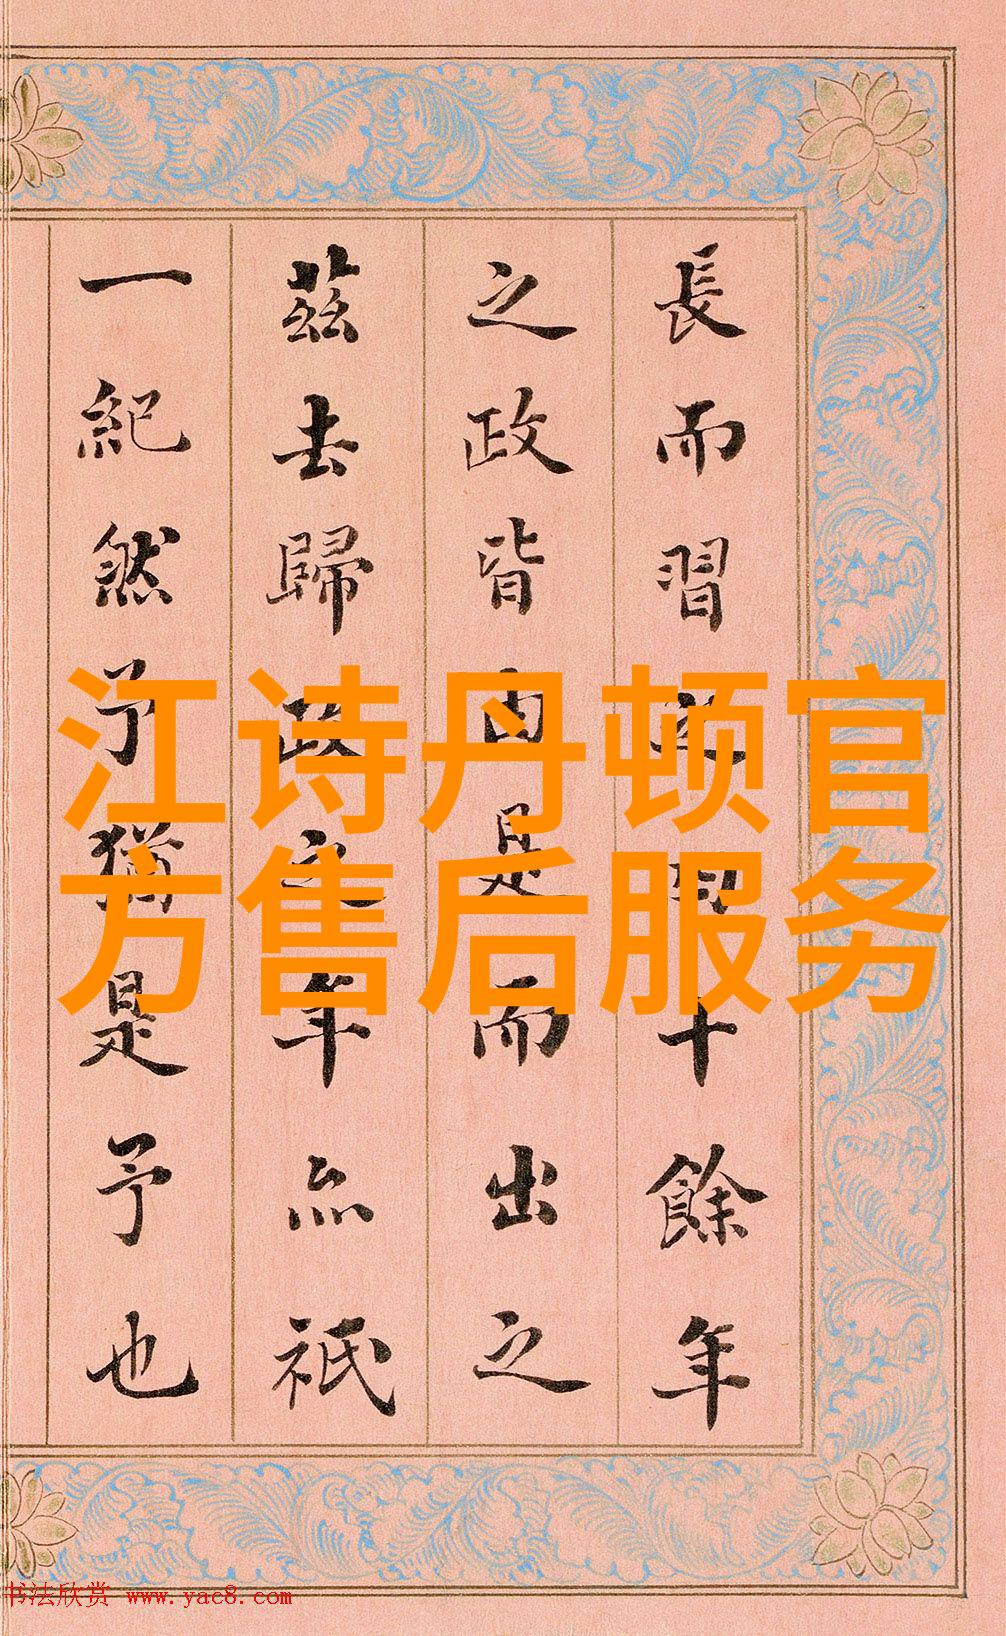 長而習之四十餘年
之政皆由是而出之
茲去歸政之年亦祇
一紀然予猶是予也
江诗丹顿官
方售后服务
书法欣赏 www.yac8.com